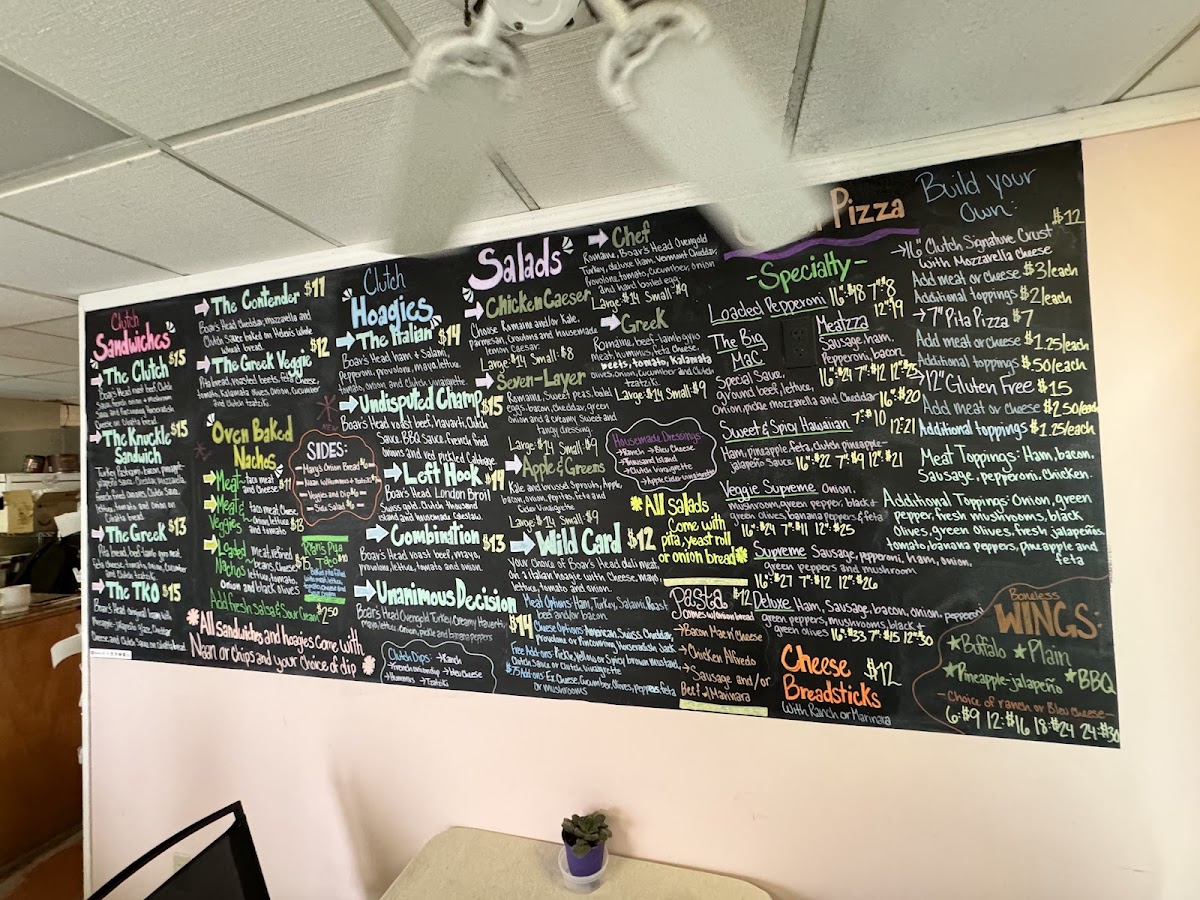 Clutch
Sandwiches
The Clutch $15
Boar's Head roast beef, Clutch
Cheese on Ciabatta bread.
The Knuckle $15
Sandwich
Turkey, Pastrami, bacon, pineapple
lettuce, tomato and onion on
Ciabatta bread.
The Greek $13
Pita bread, beef-lamb gyro meat,
feta cheese, tomato, onion, cucumber
and Clutch tzatziki.
The TKO $15
The Contender $11
Boar's Head cheddar, mozzarella and
Clutch Sauce baked on Helen's white
wheat bread.
The Greek Veggie $12
Pita bread, roasted beets, feta cheese,
tomato, Kalamata olives, Onion, cucumber
and Clutch tzatziki.
Oven Baked
Nachos
Meat- taco meat
and Cheese $11
Meat & Veggies- taco meat, Cheese,
onion, lettuce
and tomato $13
Loaded Nachos- Meat, refried
beans, Cheese, $15
lettuce, tomato,
Onion and black olives
Add fresh Salsa & Sour Cream $2.50
SIDES:
Mary's Onion Bread $6
Naan w/Hummus + Tzatziki
Veggies and Dip $6
Side Salad $6
NEW
Pita
Taco
Baked pita filled
with meat, lettuce,
tomato, cheese
*All sandwiches and hoagies come with
Naan or chips and your choice of dip *
Clutch
Hoagies
The Italian $14
Boar's Head ham + Salami,
Pepperoni, provolone, mayo, lettuce,
tomato, onion and Clutch vinaigrette
Undisputed Champ $15
Boar's Head roast beef, havarti, Clutch
Sauce, BBQ Sauce, french fried
onions and red pickled Cabbage
Left Hook $14
Boar's Head London Broil
Swiss, gold, Clutch thousand
island and housemade Coleslaw.
Combination $13
Boar's Head roast beef, mayo,
provolone, lettuce, tomato and onion.
Unanimous Decision
$14
Boar's Head Ovengold Turkey, Creamy Havarti,
mayo, lettuce, Onion, pickle and banana peppers
Clutch Dips: → Ranch
→ French onion dip → bleu Cheese
→ Hummus → Tzatziki
Salads
Chicken Caeser
Choose Romaine and/or Kale,
Parmesan, Croutons and Housemade
lemon Caesar.
Large: $14 Small: $8
Seven-Layer
Romaine, Sweet peas, boiled
eggs, bacon, cheddar, green
Onion and a creamy Sweet and
tangy dressing.
Large: $14 Small: $9
Apple & Greens
Kale and brussel Sprouts, Apple,
bacon, onion, Pepitas, feta and
Cider Vinaigrette
Large: $14 Small: $9
Chef
Romaine, Boar's Head Ovengold
Turkey, deluxe Ham, Vermont Cheddar,
Provolone, tomato, cucumber, onion
and hard boiled egg.
Large: $14 Small: $9
Greek
Romaine, beef-lamb gyro
meat, hummus, feta Cheese,
beets, tomato, Kalamata
olives, onion, Cucumber and Clutch
tzatziki.
Large: $14 Small: $9
Housemade Dressings
→ Ranch → Bleu Cheese
→ Thousand island
→ Clutch Vinaigrette
→ Apple Cider Vinaigrette
*All Salads
Come with
pita, yeast roll
or onion bread*
Wild Card $12
Your Choice of Boar's Head deli meat,
on a Italian hoagie with Cheese, mayo,
lettuce, tomato and onion.
Meat Options: Ham, Turkey, Salami, Roast
beef and/or bacon
Cheese Options: American, Swiss, Cheddar,
Provolone or Pinconning, horseradish Jack
Free Add-ons: Pickle, Yellow or Spicy brown mustard,
Clutch Sauce or Clutch Vinaigrette
$.75 Add-ons: Ex. Cheese, Cucumber, Olives, peppers, feta
or mushrooms
Pasta $12
Comes w/onion bread
→ Bacon Mac n' Cheese
→ Chicken Alfredo
→ Sausage and/or
Beef w/ Marinara
Pizza
-Specialty-
Loaded Pepperoni 16":$18 7":$8
12":$19
The Big
Mac
Special Sauce,
ground beef, lettuce,
Onion, pickle, mozzarella and Cheddar
16":$20
Meatzza
Sausage, ham,
Pepperoni, bacon
Sweet & Spicy Hawaiian 7":$10 12":21
Ham, pineapple, feta, clutch pineapple-
jalapeño Sauce 16":$22 7":$9 12":$21
Veggie Supreme Onion,
mushroom, green pepper, black +
green olives, banana peppers & feta
16":$24 7":$11 12":$25
Supreme Sausage, pepperoni, Ham, onion,
green peppers and mushroom
16":$27 7":$12 12":$26
Deluxe Ham, Sausage, bacon, onion, pepperoni
green peppers, mushrooms, black +
green olives 16":$33 7":$15 12":$30
Cheese $12
Breadsticks
With Ranch or Marinara
Build your
Own:
$12
→ 16" Clutch Signature Crust
with Mozzarella Cheese
Add meat or cheese $3/each
Additional toppings $2/each
→ 7" Pita Pizza $7
Add meat or cheese $1.25/each
Additional toppings $.50/each
→ 12" Gluten Free $15
Add meat or cheese $2.50/each
Additional toppings $1.25/each
Meat Toppings: Ham, bacon,
Sausage, pepperoni, chicken.
Additional Toppings: Onion, green
pepper, fresh mushrooms, black
Olives, green olives, fresh jalapeños,
tomato, banana peppers, pineapple and
feta
Boneless
WINGS:
★Buffalo ★Plain
★Pineapple-jalapeño ★BBQ
-Choice of ranch or Bleu Cheese-
6:$9 12:$16 18:$24 24:$30